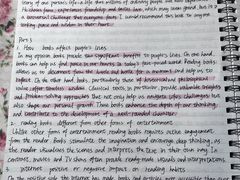 story of our person's life - a life that millions of ordinary people
It shows fame, experience friendship and
a universal challenge that everyone faces. I would recommend this book to anyone
seeking peace and wisdom in their heart.
Part 3
1. How books affect people's lives
In my opinion books provide two significant benefits to people's lives. On one hand
books can help us find peace in our hearts in today's fast-paced world. Reading books
allows us to disconnect from the and for a moment and help us to
reflect. On the other hand books, particularly those of historical and philosophical
value offer timeless wisdom. Classical texts in particular, provide valuable insights
and problem-solving approaches that not only help us navigate life's challenges but
also shape our personal growth. These books enhance the depth of our thinking
and contribute to the development of a well-rounded character.
2. Reading books different from other forms of entertainment
Unlike other forms of entertainment, reading books requires active engagement
from the reader. Books stimulate the imagination and encourage deep thinking, as
the reader visualizes the scenes and interprets the text in their own way. In
contrast, movies and TV shows often provide ready-made visuals and interpretations
3. internet positive or negative impact on reading habits
On the positive side the internet has made books and articles more accessible than ever